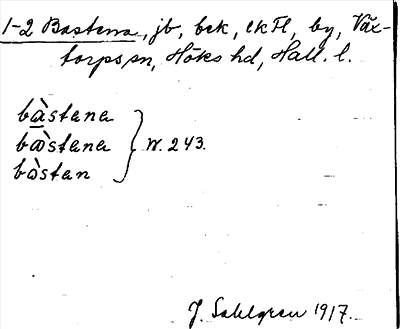 1-2 Bastena, jb, bek, ekFl, by, Våx-
torps sn, Höks hd, Hall. l.
bàstana
bàstana } W. 243.
bàstan
J. Sahlgren 1917.